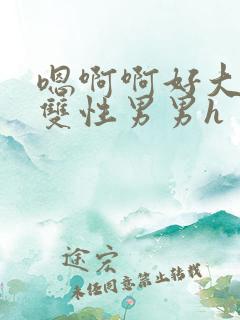 嗯啊啊好大
雙性男男h
途宏
未经同意禁止转载